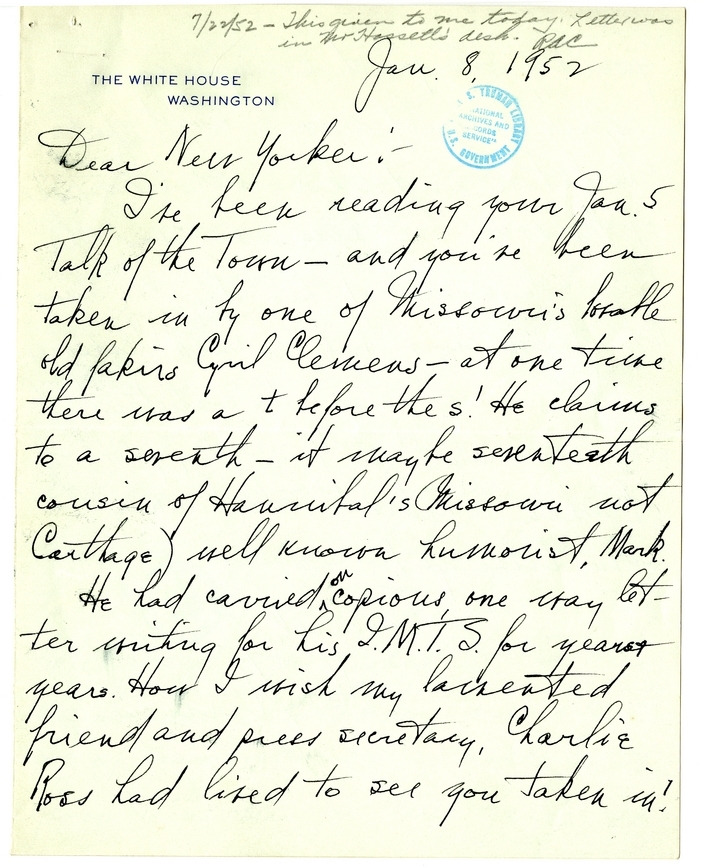 7/22/52 - This given to me today. Letter was
in Mr Hassett's desk. RAC
Jan. 8, 1952
THE WHITE HOUSE
WASHINGTON
S. TRUMAN LIBRARY
NATIONAL
ARCHIVES AND
RECORDS
SERVICE
U.S. GOVERNMENT
Dear New Yorker:-
I've been reading your Jan. 5
Talk of the Town - and you've been
taken in by one of Missouri's lovable
old fakirs Cyril Clemens - at one time
there was a t before the s! He claims
to a seventh - it maybe seventeeth
cousin of Hannibal's (Missouri not
Carthage) well known humorist, Mark.
He had carried on copious, one way let-
ter writing for his I.M.T.S. for years &
years. How I wish my lamented
friend and press secretary, Charlie
Ross had lived to see you taken in!